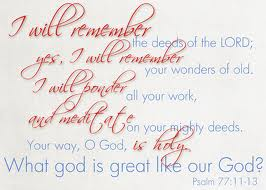 I will remember the deeds of the LORD;
yes, I will remember your wonders of old.
I will ponder all your work,
and meditate on your mighty deeds.
Your way, O God, is holy.
What god is great like our God?
Psalm 77:11-13